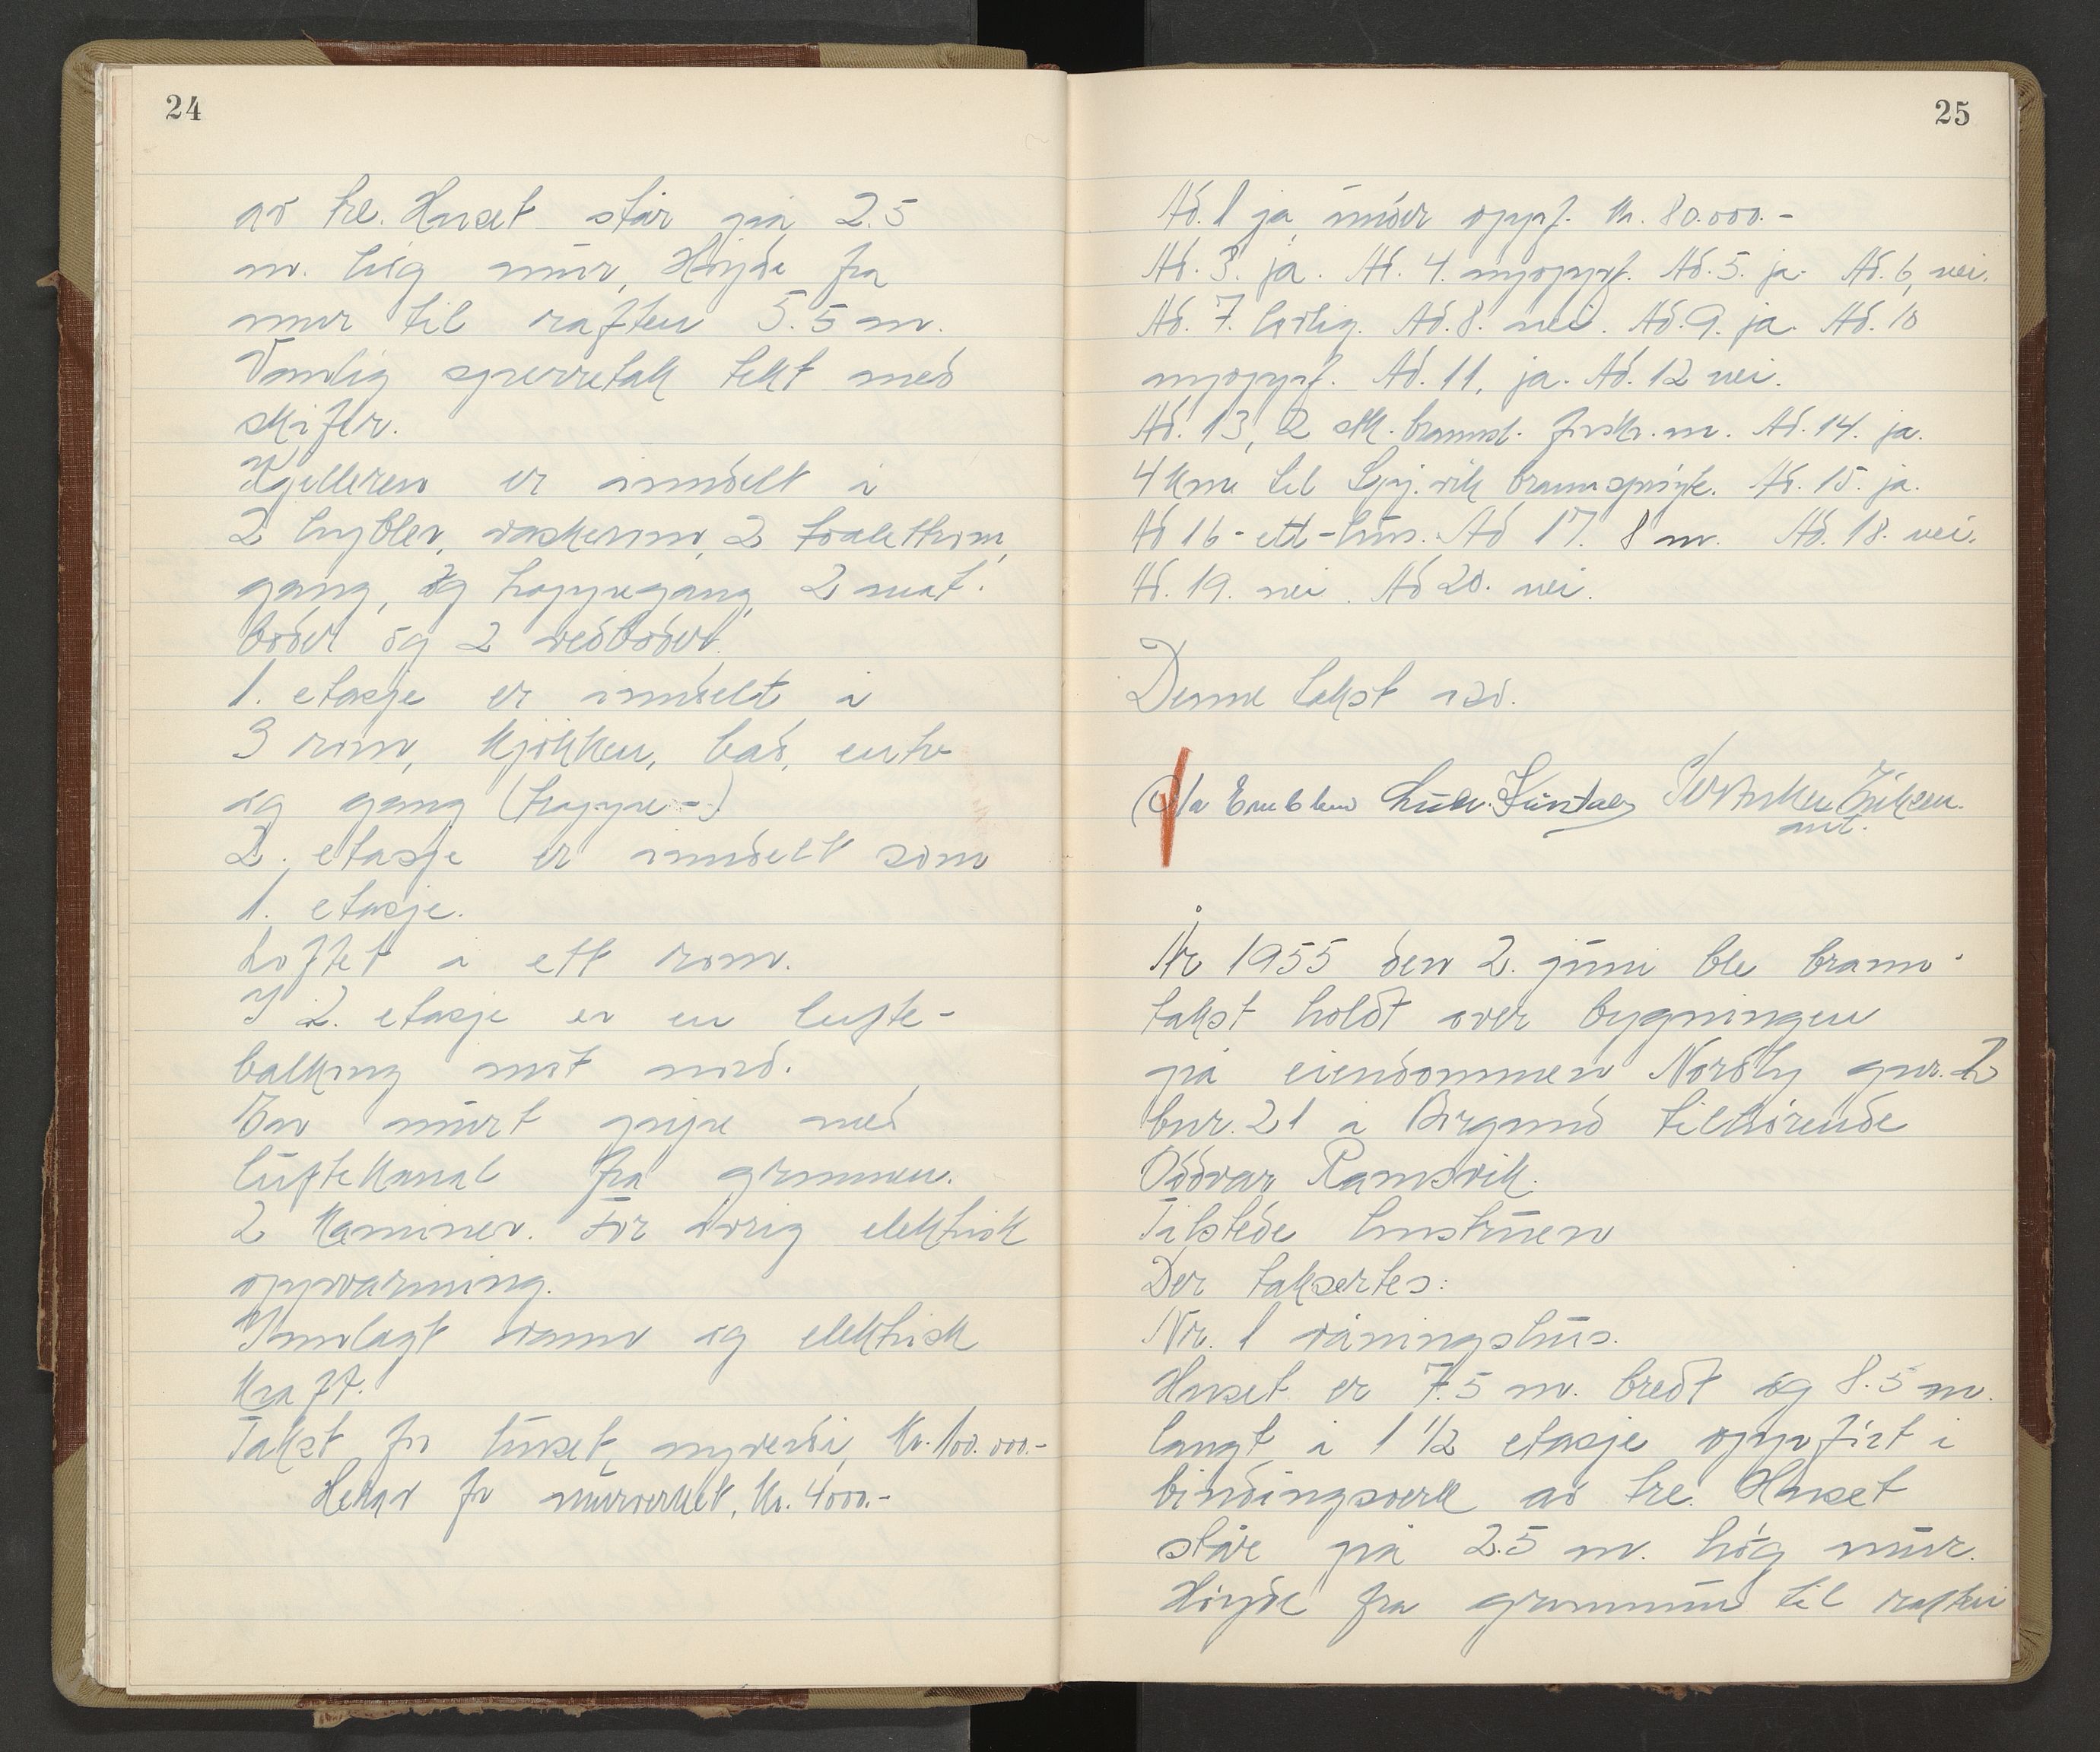 24
av tre. Huset står på 2.5
m. høg mur, Høyde fra
mur til raften 5.5 m.
Vanlig sperretak tekt med
skifer.
Kjelleren er inndelt i
2 hybler, vaskerom, 2 toaletthrom,
gang, og trappegang, 2 mat-
boder og 2 vedboder.
1. etasje er inndelt i
3 rom, kjøkken, bad, entre
og gang (trappe-)
2. etasje er inndelt som
1. etasje.
Loftet i ett rom.
I 2. etasje er en lufte-
balkong mot nord.
En murt pipe med
luftekanal fra grunnen.
2 kaminer. For øvrig elektrisk
oppvarming.
Innlagt vann og elektrisk
kraft.
Takst for huset, nyverdi, kr. 100.000.-
Herav for murverket, kr. 4000.-
25
Ad. 1 ja, under oppf. kr. 80.000.-
Ad. 3. ja. Ad. 4. nyoppf. Ad. 5. ja. Ad. 6, nei.
Ad. 7. lovlig. Ad. 8. nei. Ad. 9. ja. Ad. 10
nyoppf. Ad. 11, ja. Ad. 12 nei.
Ad. 13, 2 stk. brannsl. forskr. m. Ad. 14. ja.
4 km til Spj.vik brannsprøyte. Ad. 15. ja.
Ad 16 - ett - hus. Ad 17. 8 m. Ad. 18. nei.
Ad. 19. nei. Ad 20. nei.
Denne takst
Ola Emblem
ass.
År 1955 den 2. juni ble brann-
takst holdt over bygningen
på eiendommen Nordly gnr. 2
bnr. 21 i Borgund tilhørende
Oddvar Ramsvik.
Tilstede hustruen
Der taksertes:
Nr. 1 våningshus.
Huset er 7.5 m. bredt og 8.5 m.
langt i 1 1/2 etasje oppført i
bindingsverk av tre. Huset
står på 2.5 m. høg mur.
Høyde fra grunnmur til raften